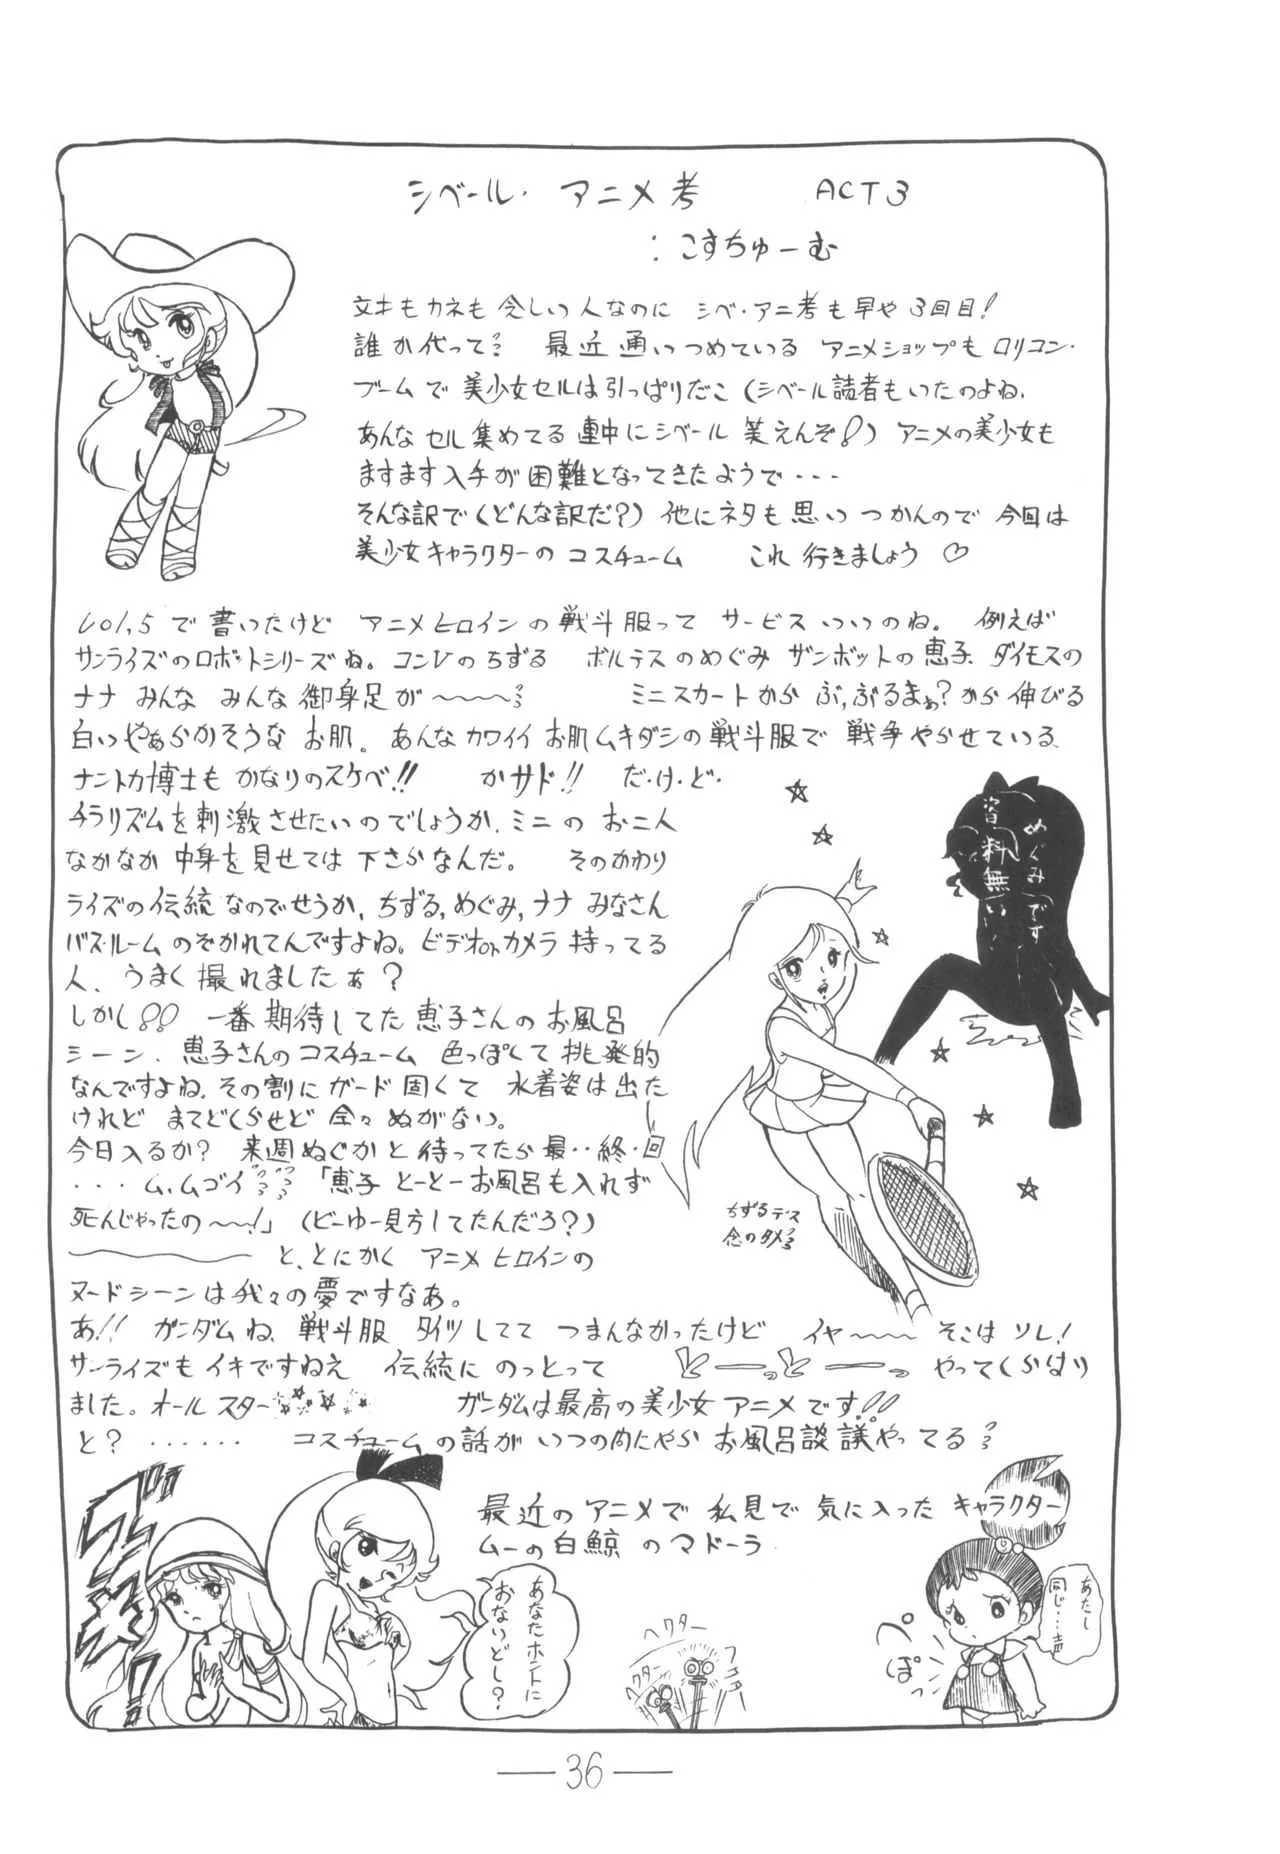 シベール・アニメ考 ACT3
：こすちゅーむ
文才もカネも念しい人なのに シベ・アニ考も早や3回目！
誰か代って 最近通いつめている アニメショップも ロリコン・
ブームで 美少女セルは引っぱりだこ（シベール読者もいたのよね、
あんな セル集めてる 連中にシベール 笑えんぞ！）アニメの美少女も
ますます入手が 困難となってきたようで・・・
そんな訳で（どんな訳だ？）他にネタも思いつかんので 今回は
美少女キャラクターの コスチューム これ行きましょう♡
Vol,5で書いたけど アニメヒロインの戦斗服って サービスいいのね。例えば
サンライズのロボットシリーズね。コンVのちずる ボルテスのめぐみ ザンボットの恵子、ダイモスの
ナナ みんな みんな 御身足が〜〜〜 ミニスカートから ぶ,ぶるまぁ？から伸びる
白いやぁらかそうな お肌。あんなカワイイ お肌ムキダシの戦斗服で 戦争やらせている、
ナントカ博士も かなりのスケベ!! かサド!! だ・け・ど・
チラリズムを刺激させたいのでしょうか、ミニの お二人
なかなか 中身を見せては 下さらなんだ。 そのかわり
ライズの伝統なのでせうか、ちずる,めぐみ,ナナ みなさん
バス・ルーム のぞかれてんですよね。ビデオorカメラ 持ってる
人、うまく撮れましたぁ？
しかし!! 一番期待してた 恵子さんのお風呂
シーン、恵子さんのコスチューム 色っぽくて挑発的
なんですよね、その割に ガード固くて 水着姿は出た
けれど まてどくらせど 全々ぬがない。
今日入るか？ 来週ぬぐかと待ってたら最・・終・回
・・・ム、ムゴイ 「恵子 とーとーお風呂も入れず
死んじゃったの〜〜！」（どーゆー見方してたんだろ？）
と、とにかく アニメヒロインの
ヌードシーンは我々の夢ですなあ。
あ!! ガンダムね、戦斗服 タイツしてて つまんなかったけど イヤ〜〜〜 そこは ソレ！
サンライズも イキですねえ 伝統に のっとって どーっと ー やってくらはり
ました。オールスター☆☆☆☆ ガンダムは最高の美少女アニメです!!
と？ ・・・・・・ コスチュームの話が いつの間にやら お風呂談議やってる
最近のアニメで 私見で 気に入った キャラクター
ムーの白鯨 のマドーラ
めぐみです
資料無い
ちずるデス
念のタメ
あなたホントに
おないどし？
ヘクター
ヘクター
フラフラ
ぺ
ぽっ
あたし
同じ…
36